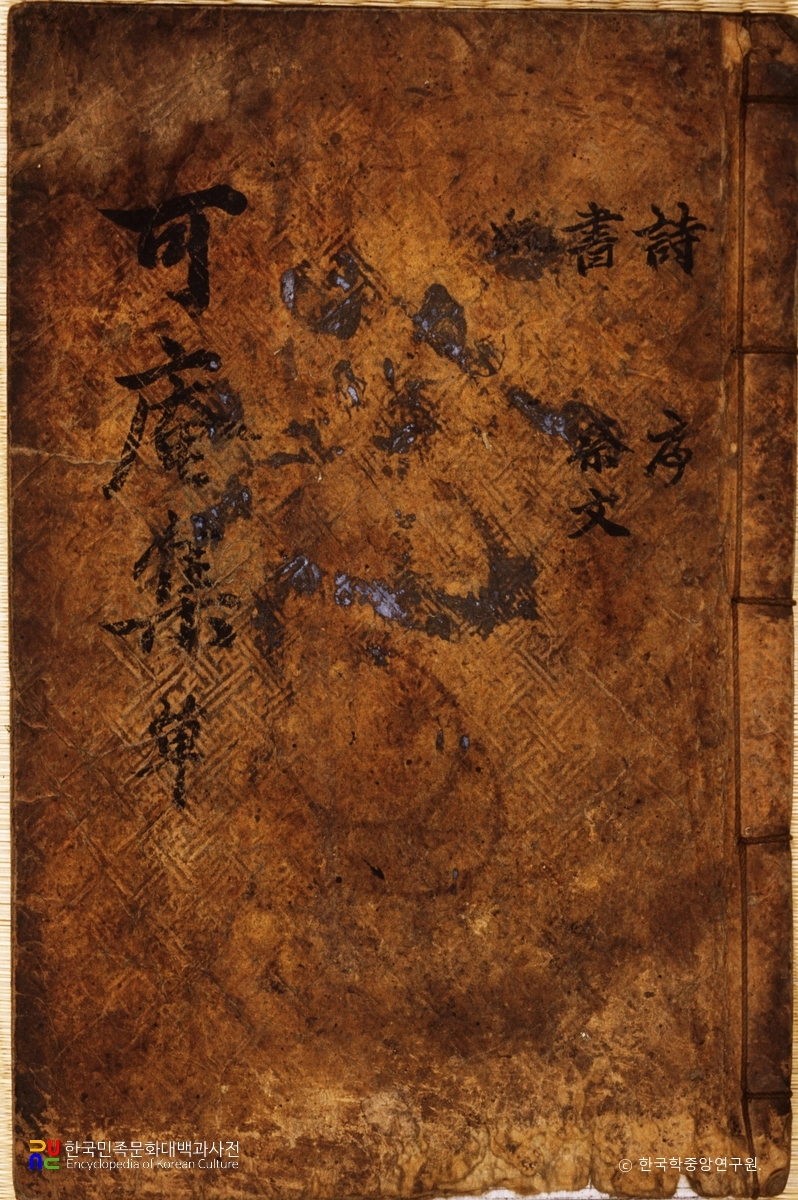 詩 序
書 祭文
可庵集 單
한국민족문화대백과사전
Encyclopedia of Korean Culture
© 한국학중앙연구원